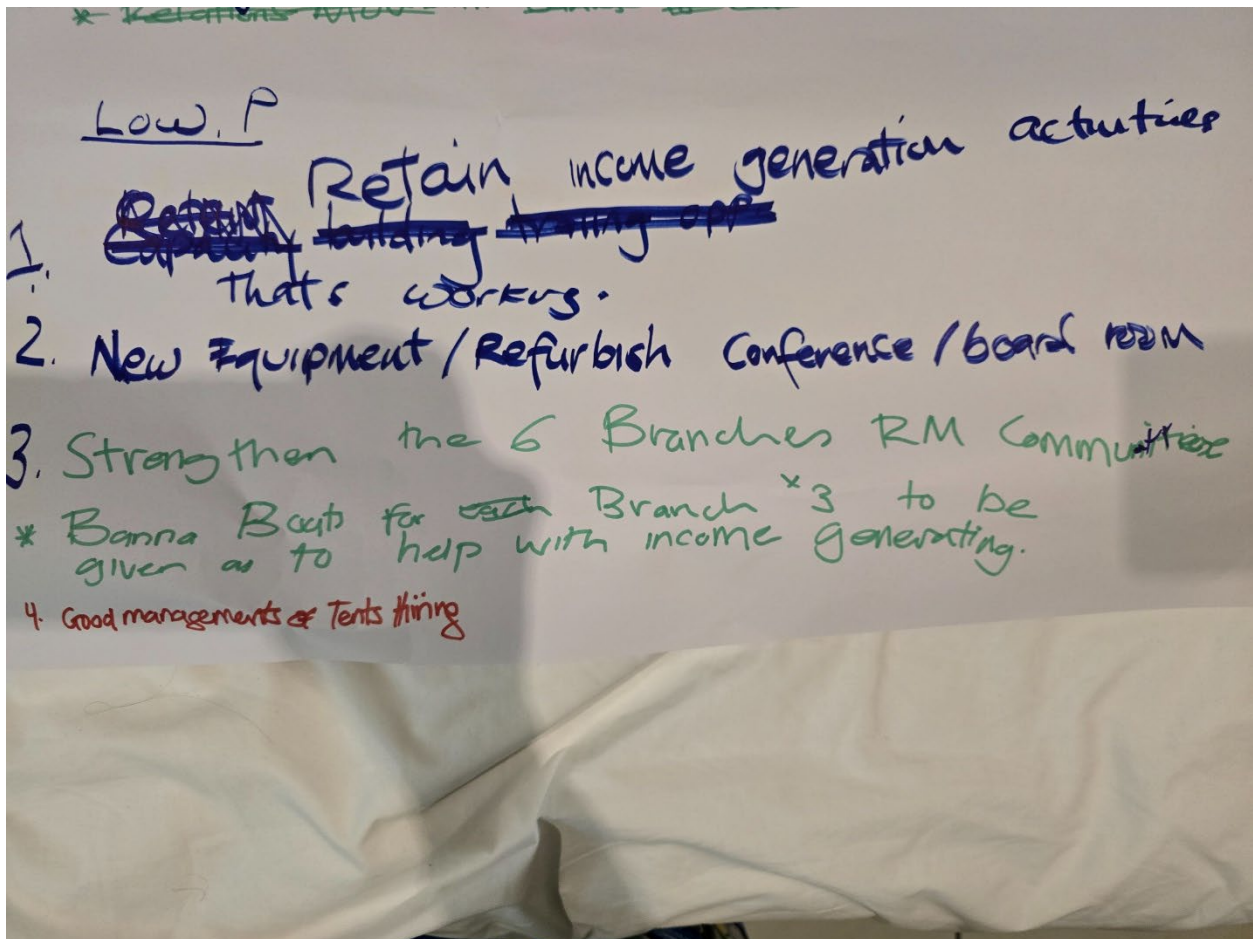 Low. P
1. Retain income generation activities
That's working.
2. New Equipment / Refurbish Conference / board room
3. Strengthen the 6 Branches RM Communities
* Banna Boats for each Branch *3 to be
given as to help with income generating.
4. Good managements of Tents hiring